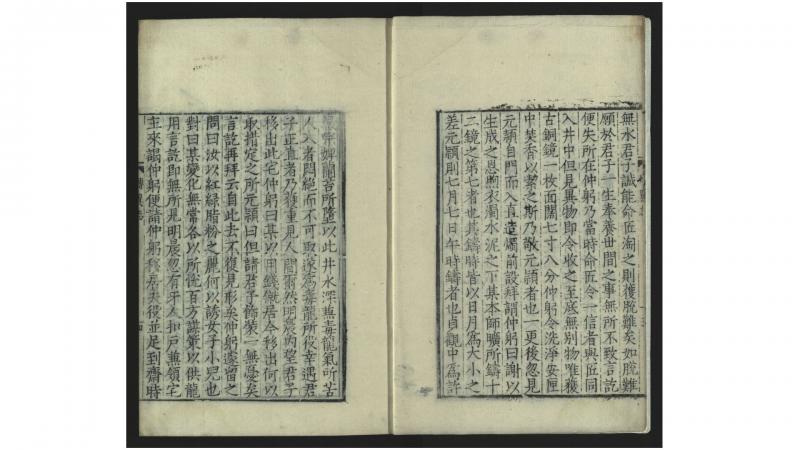 無水君子誠能命匠淘之則獲脫難矣如脫難
願於君子一生奉養世間之事無所不致言訖
便失所在仲躬乃當時命匠令一信者與匠同
入井中但見異物即令收之至底無別物唯獲
古銅鏡一枚面闊七寸八分仲躬令洗淨安匣
中焚香以潔之斯乃敬元頴者也一更後忽見
元頴自門而入直造燭前設拜謂仲躬曰謝以
生成之恩煦衣濁水泥之下某本師曠所鑄十
二鏡之第七者也其鑄時皆以日月爲大小之
差元頴則七月七日午時鑄者也貞觀中爲許
婢蘭苕所墮以此井水深兼毒龍氣所苦
人入者悶絕而不可取遂爲毒龍所役幸遇君
子正直者乃獲重見人間爾然明晨內望君子
移出此宅仲躬曰某以用錢僦居今移出何以
取措足之所元頴曰但請君子飾裝一無憂矣
言訖再拜云自此去不復見形矣仲躬遽留之
問曰汝以紅綠脂粉之麗何以誘女子小兒也
對曰某變化無常各以所悅百方謀策以供龍
用言訖即無所見明晨忽有牙人扣戶兼領宅
主來謁仲躬便請仲躬移居夫役並足到齋時